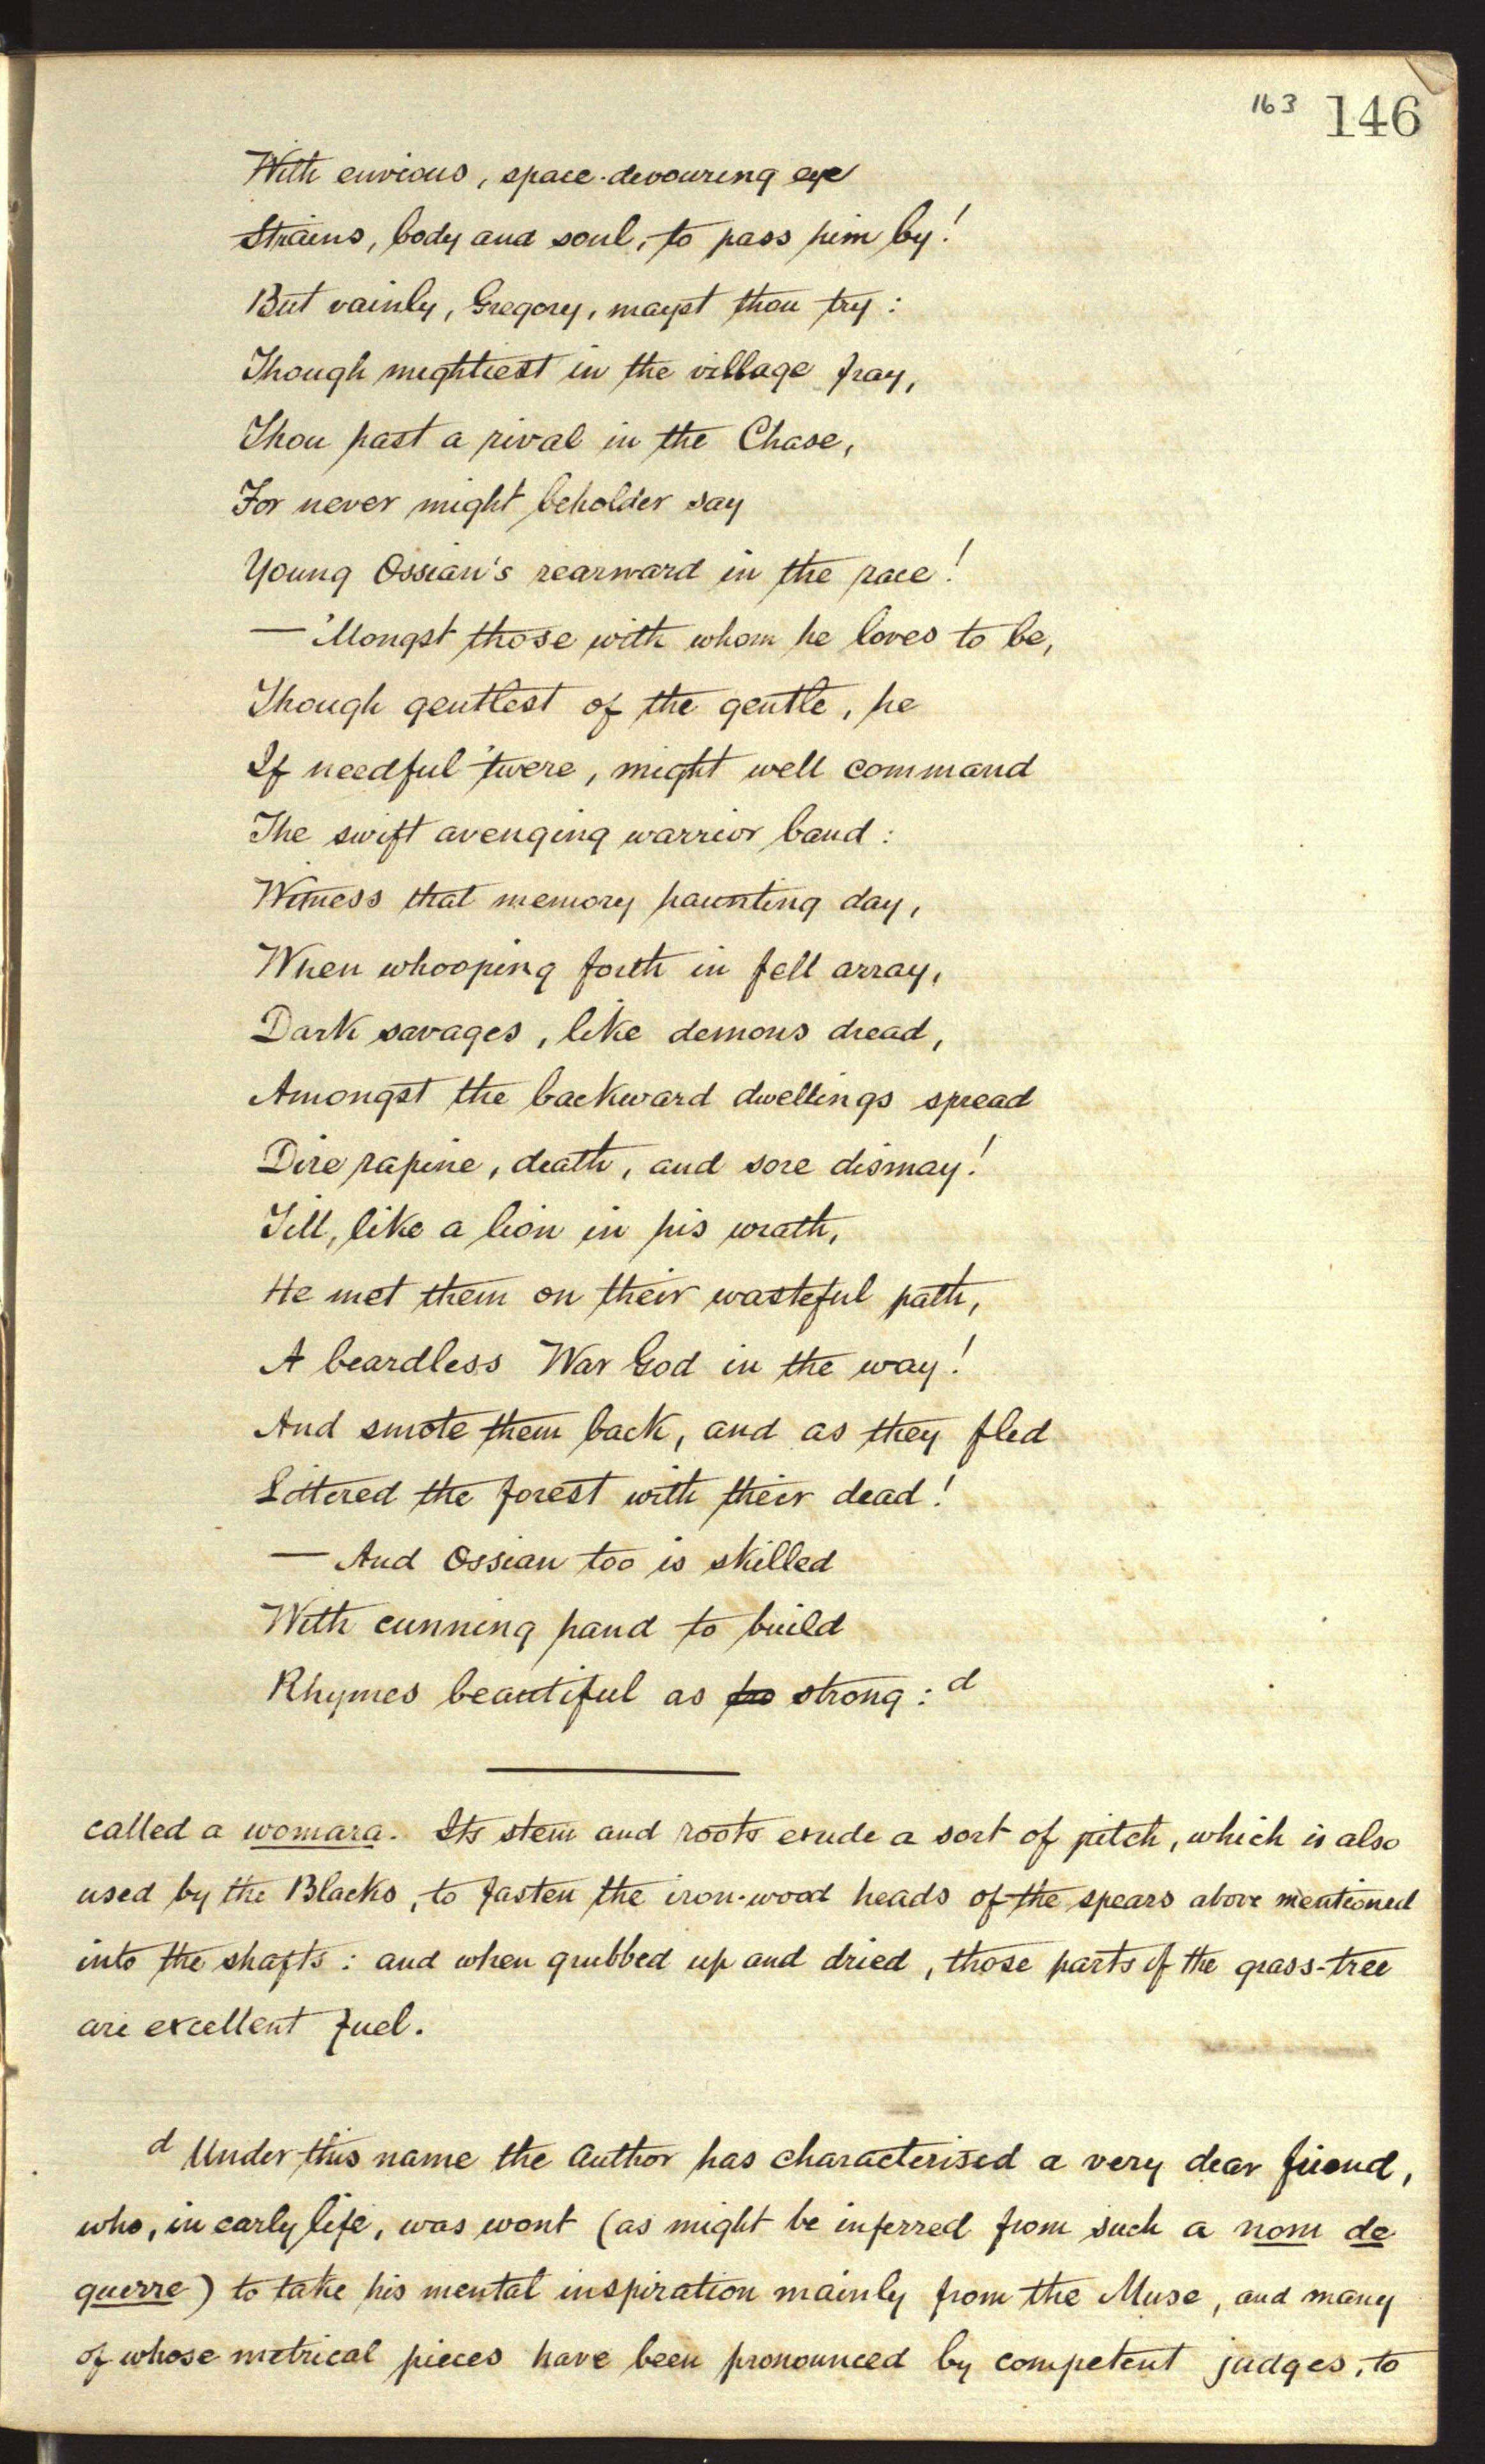 163 146
With envious, space-devouring eye
Strains, body and soul, to pass him by!
But vainly, Gregory, mayst thou try:
Though mightiest in the village fray,
Thou hast a rival in the Chase,
For never might beholder say
Young Ossian's rearward in the race!
— 'Mongst those with whom he loves to be,
Though gentlest of the gentle, he
If needful 'twere, might well command
The swift avenging warrior band:
Witness that memory haunting day,
When whooping forth in fell array,
Dark savages, like demons dread,
Amongst the backward dwellings spread
Dire rapine, death, and sore dismay!
Till, like a lion in his wrath,
He met them on their wasteful path,
A beardless War God in the way!
And smote them back, and as they fled
Littered the forest with their dead!
— And Ossian too is skilled
With cunning hand to build
Rhymes beautiful as strong: d
called a womara. Its stem and roots exude a sort of pitch, which is also
used by the Blacks, to fasten the iron-wood heads of the spears above mentioned
into the shafts: and when grubbed up and dried, those parts of the grass-tree
are excellent fuel.
d Under this name the Author has characterised a very dear friend,
who, in early life, was wont (as might be inferred from such a nom de
guerre) to take his mental inspiration mainly from the Muse, and many
of whose metrical pieces have been pronounced by competent judges, to